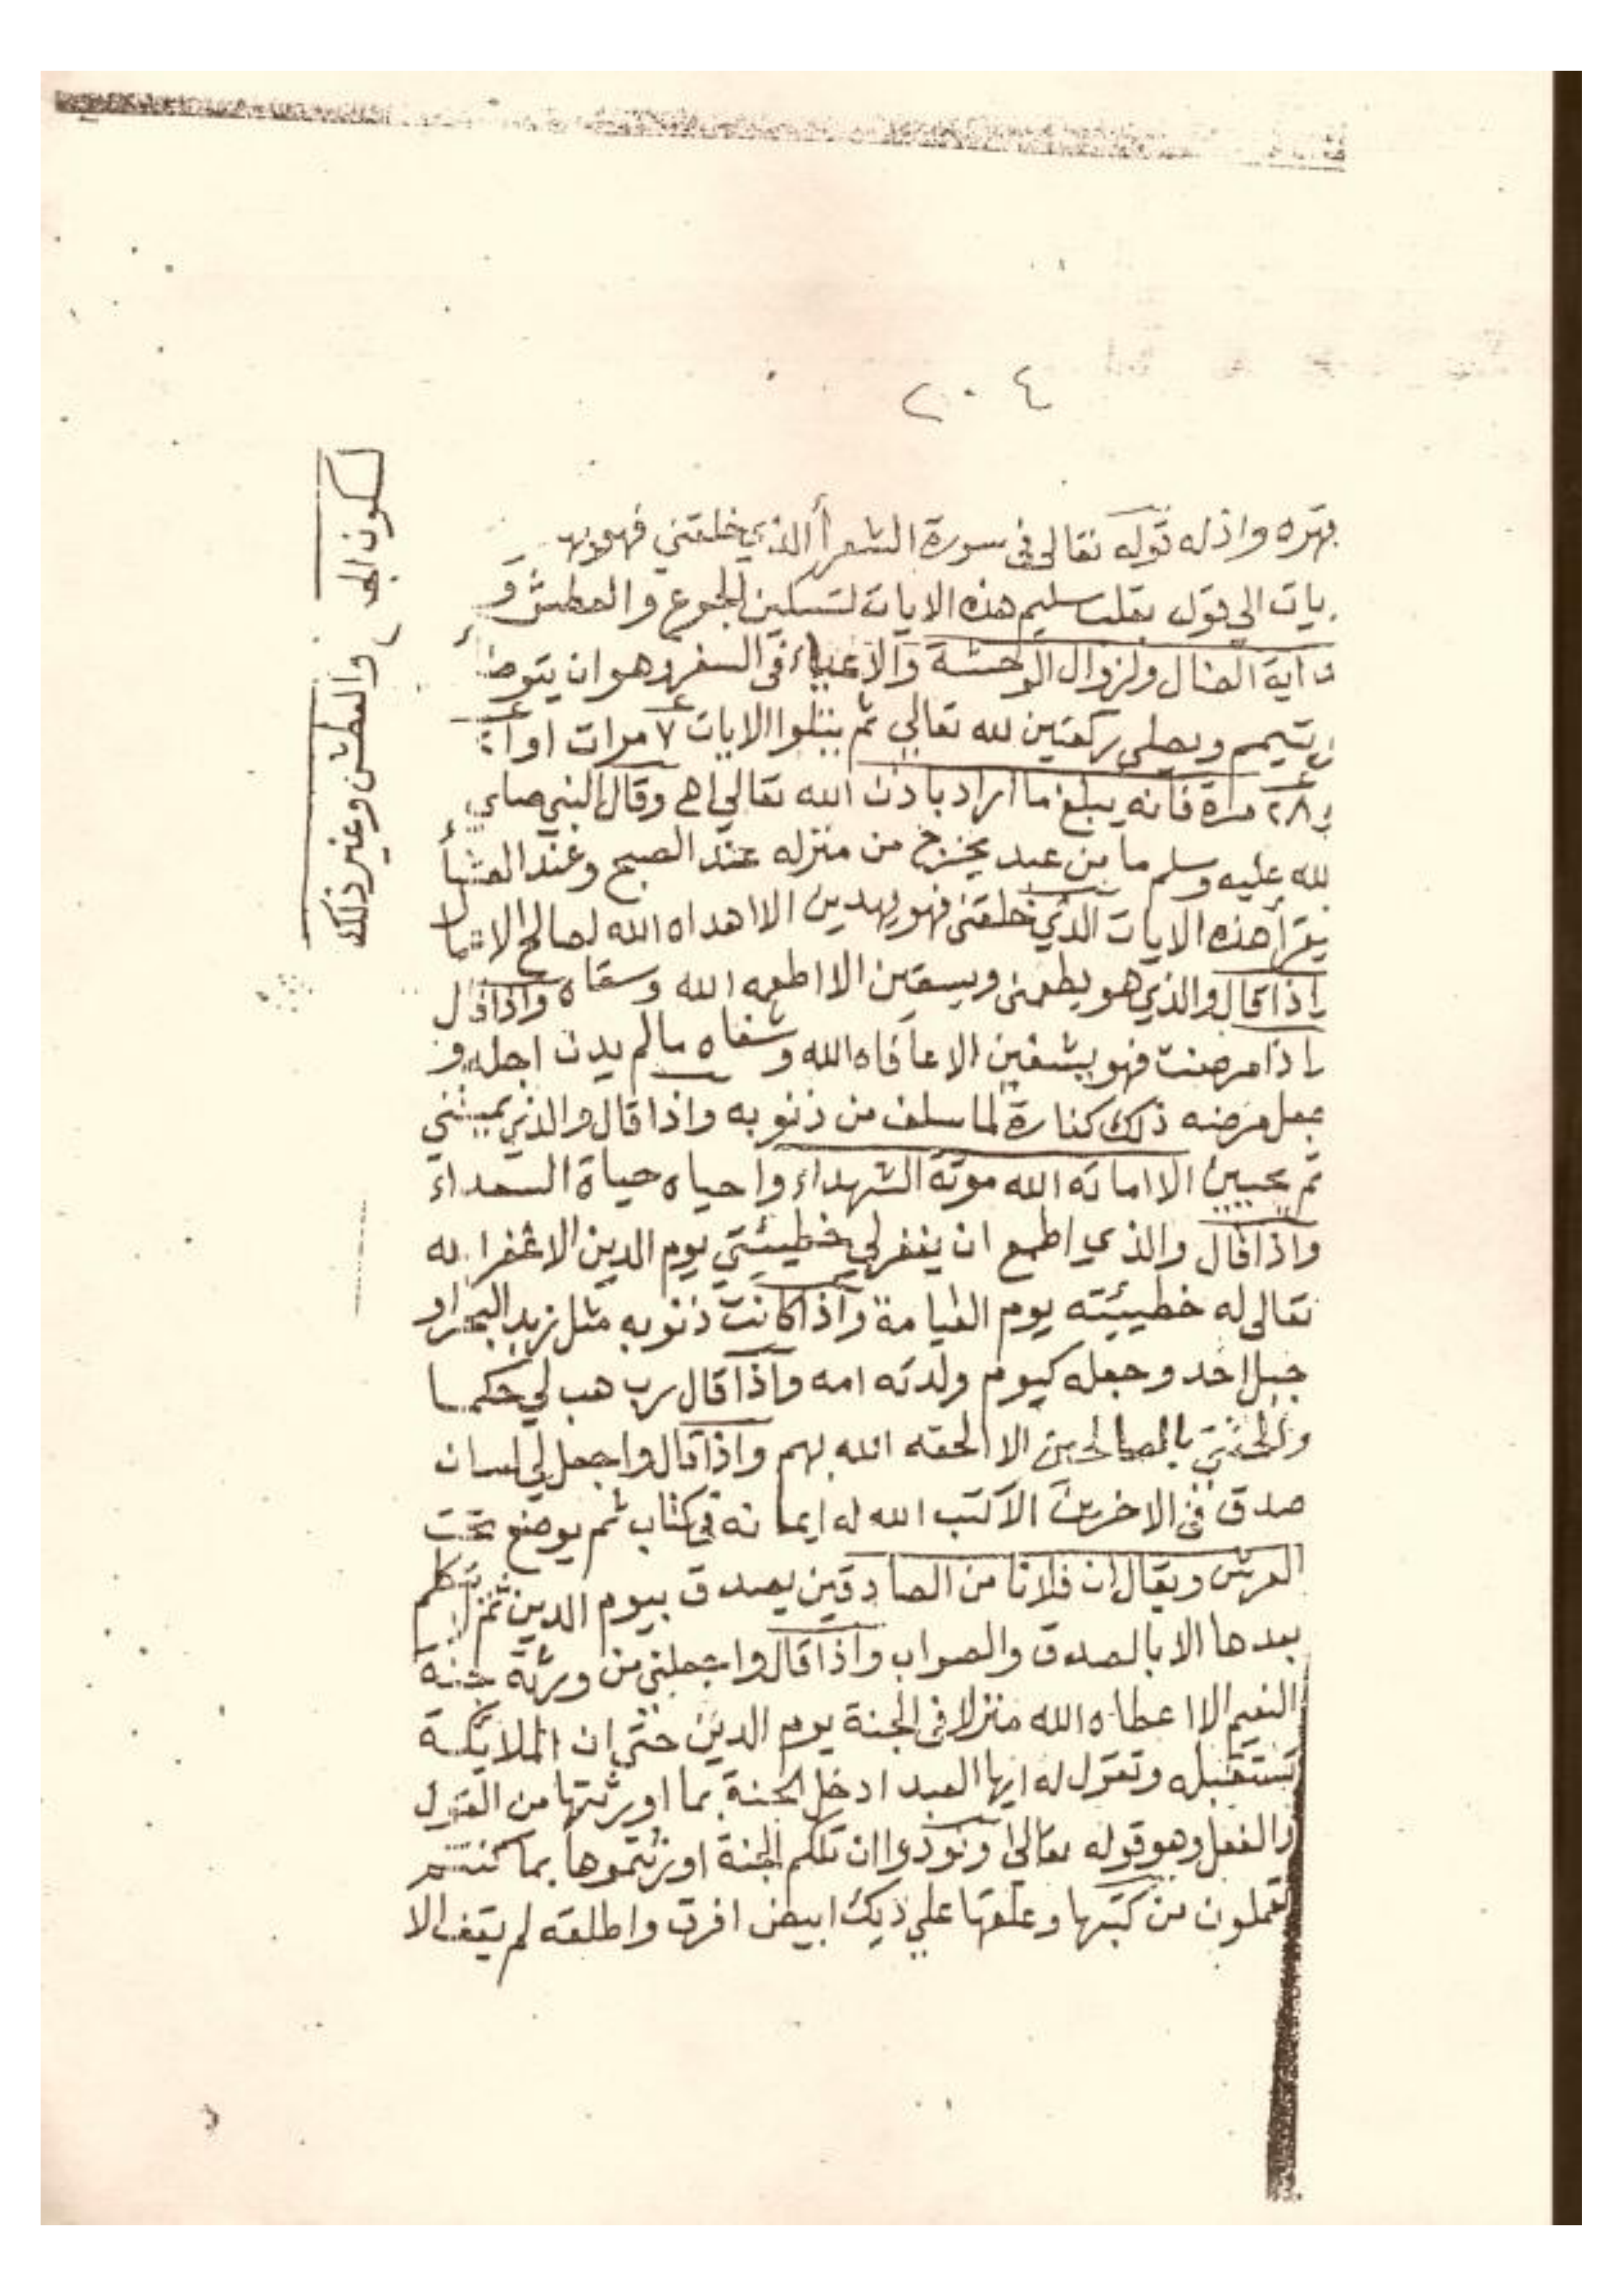 ٢٠٤
بقهره واذله قوله تعالى فى سورة الشعرأ الذي خلقني فهو يهد
يات الي قول بقلب سليم هذه الايات لتسكين الجوع والعطش و
اية الضال ولزوال الوحشة والاعياء فى السفر وهو ان يتوضأ
يتيمم ويصلي ركعتين لله تعالي ثم يتلوا الايات ٧ مرات او
٢٨ مرة فانه يبلغ ما اراد باذن الله تعالي اهـ وقال النبي صلي
لله عليه وسلم ما من عبد يخرج من منزله عند الصبح وعند العشأ
يقرأ هذه الايات الذي خلقني فهو يهدين الا هداه الله لصالح
واذا قال والذي هو يطعمني ويسقين الا اطعمه الله وسقاه واذا قال
واذا مرضت فهو يشفين الا عافاه الله وشفاه مالم يدن اجله و
جعل مرضه ذلك كفارة لما سلف من ذنوبه واذا قال والذي يميتني
ثم يحيين الا اماته الله موتة الشهداء واحياه حياة السعداء
واذا قال والذي اطمع ان يغفرلي خطيئتي يوم الدين الا غفر الله
تعالى له خطيئته يوم القيامة واذا كانت ذنوبه مثل زبد البحر او
جبل احد وجعله كيوم ولدته امه واذا قال رب هب لي حكما
والحقني بالصالحين الا الحقه الله بهم واذا قال واجعل لي لسان
صدق فى الاخرين الا كتب الله له ايمانه في كتاب ثم يوضع تحت
العرش ويقال ان فلانا من الصادقين يصدق بيوم الدين ثم لا يتكلم
بعدها الا بالصدق والصواب واذا قال واجعلني من ورثة جنة
النعيم الا اعطاه الله منزلا فى الجنة يوم الدين حتي ان الملايكة
تستقبله وتقول له ايها العبد ادخل الجنة بما اورثتها من القول
والفعل وهو قوله تعالي ونودوا ان تلكم الجنة اورثتموها بما كنتم
تعملون من كتبها وعلقها علي ديك ابيض افرق واطلقه لم يقف الا
والعطش وغير ذلك